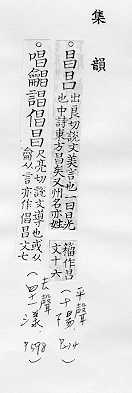 集韻
昌㫯出良切說文美言也一曰日光也申詩東方昌矣又州名亦姓籀作㫯文十六
平聲
十陽
P.214
唱龤誯倡昌尺亮切說文導也或从龠从言亦作倡昌文七
去聲
四十一漾
P.598